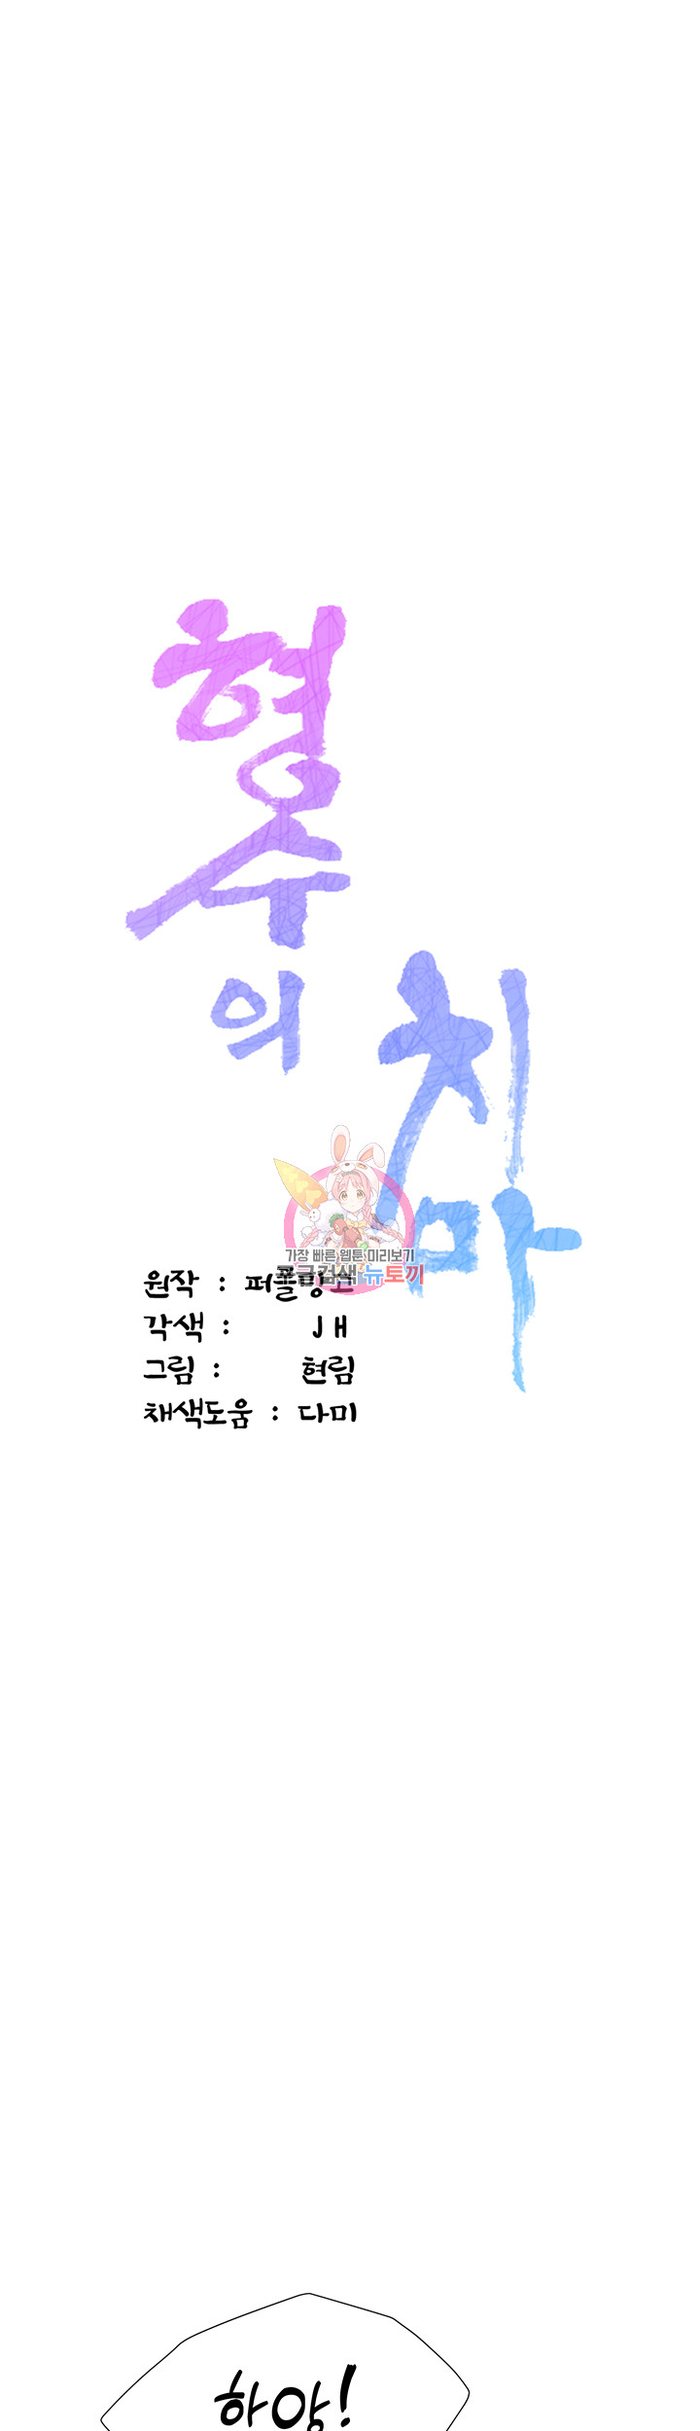 형수의
치마
가장 빠른 웹툰 미리보기
구글검색 뉴토끼
원작 :
각색 : JH
그림 : 현림
채색도움 : 다미
하앙!